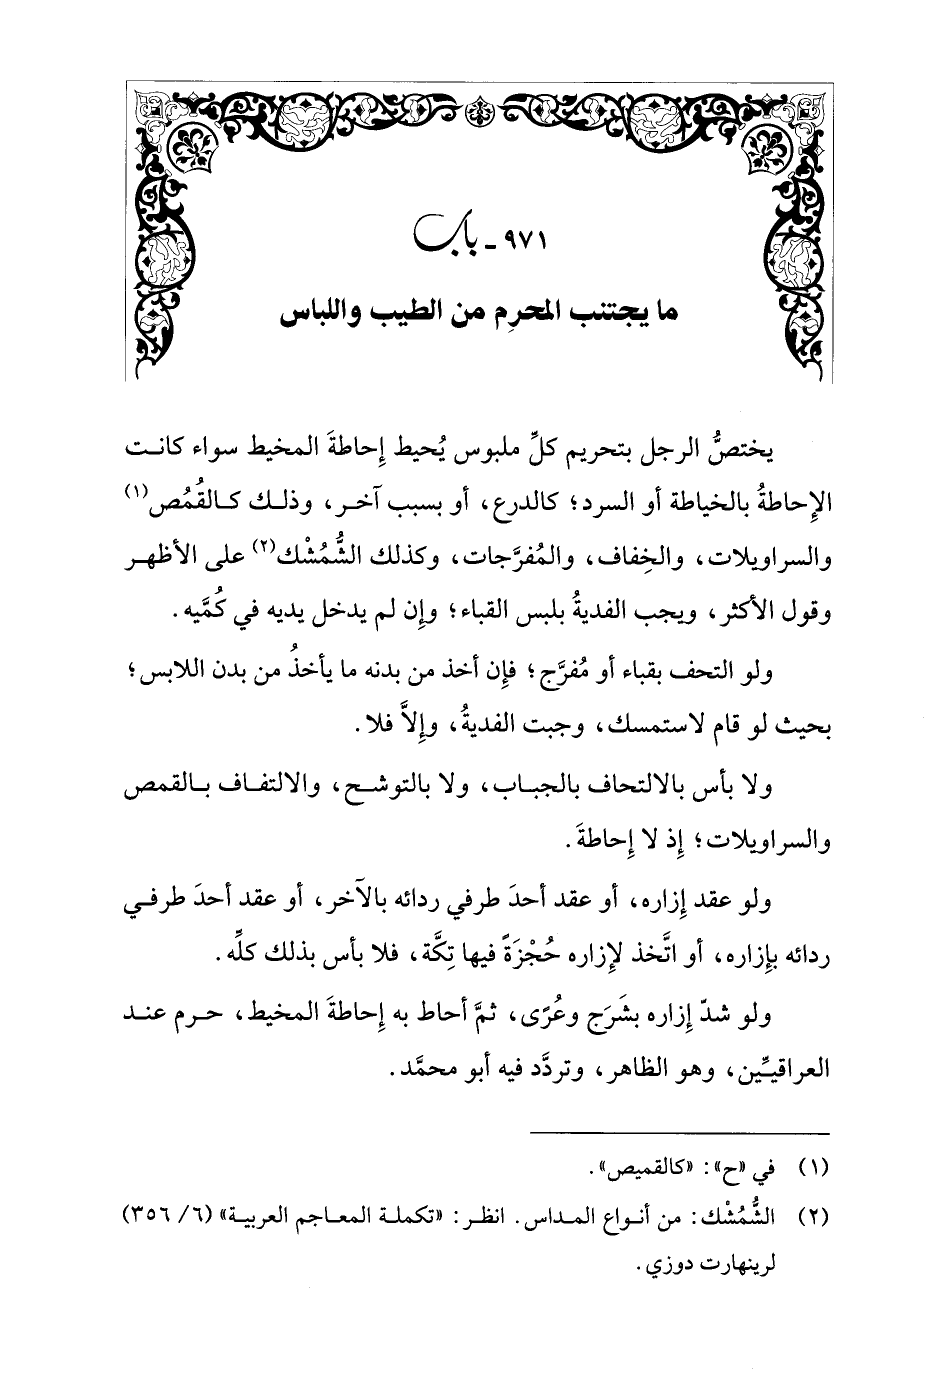 ٩٧١ - باب
ما يجتنب المحرِم من الطيب واللباس
يختصُّ الرجل بتحريم كلِّ ملبوس يُحيط إحاطةَ المخيط سواء كانت
الإحاطةُ بالخياطة أو السرد؛ كالدرع، أو بسبب آخر، وذلك كالقُمُص(١)
والسراويلات، والخِفاف، والمُفرَّجات، وكذلك الشُّمُشْك(٢) على الأظهر
وقول الأكثر، ويجب الفديةُ بلبس القباء؛ وإن لم يدخل يديه في كُمَّيه.
ولو التحف بقباء أو مُفرَّج؛ فإن أخذ من بدنه ما يأخذُ من بدن اللابس؛
بحيث لو قام لاستمسك، وجبت الفديةُ، وإلاَّ فلا.
ولا بأس بالالتحاف بالجباب، ولا بالتوشح، والالتفاف بالقمص
والسراويلات؛ إذ لا إحاطةَ.
ولو عقد إزاره، أو عقد أحدَ طرفي ردائه بالآخر، أو عقد أحدَ طرفي
ردائه بإزاره، أو اتَّخذ لإزاره حُجْزَةً فيها تِكَّة، فلا بأس بذلك كلِّه.
ولو شدّ إزاره بشَرَج وعُرًى، ثمَّ أحاط به إحاطةَ المخيط، حرم عند
العراقيِّين، وهو الظاهر، وتردَّد فيه أبو محمَّد.
(١) في «ح»: «كالقميص».
(٢) الشُّمُشْك: من أنواع المداس. انظر: «تكملة المعاجم العربية» (٦/ ٣٥٦)
لرينهارت دوزي.